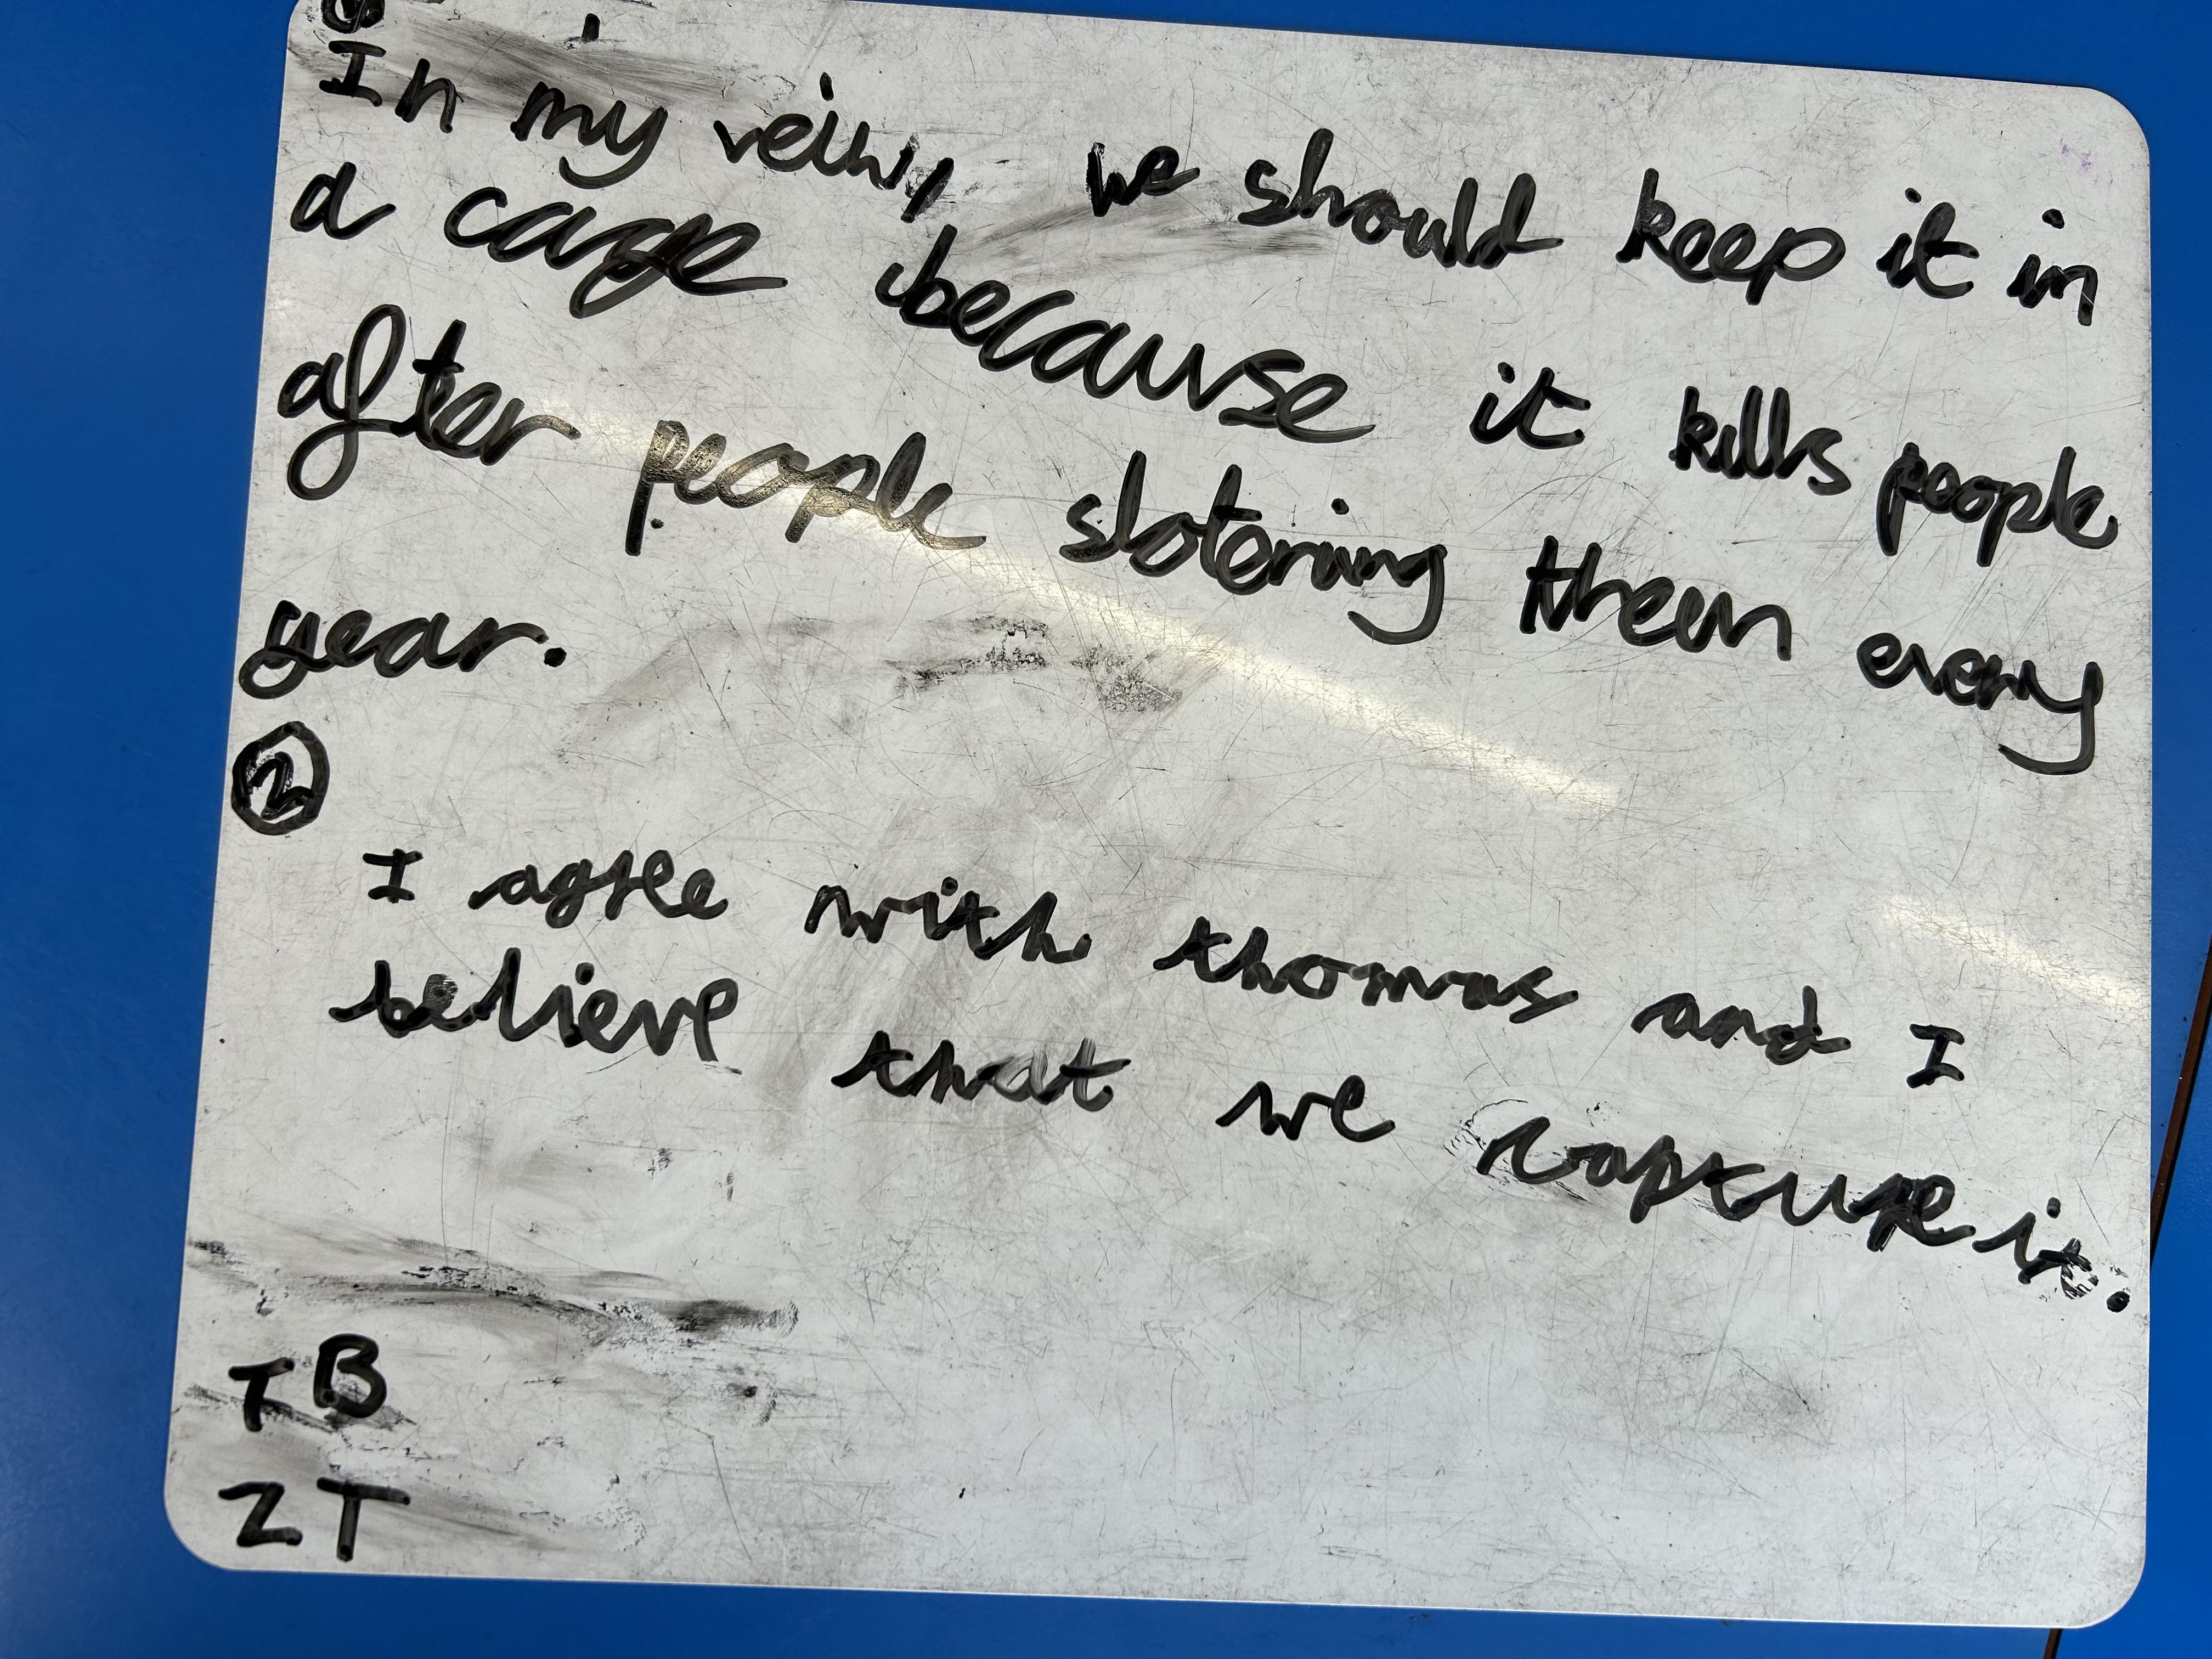 ①
In my veiw, we should keep it in
a cage because it kills people
after people slotering them every
year.
②
I agree with thomas and I
believe that we capture it.
TB
ZT